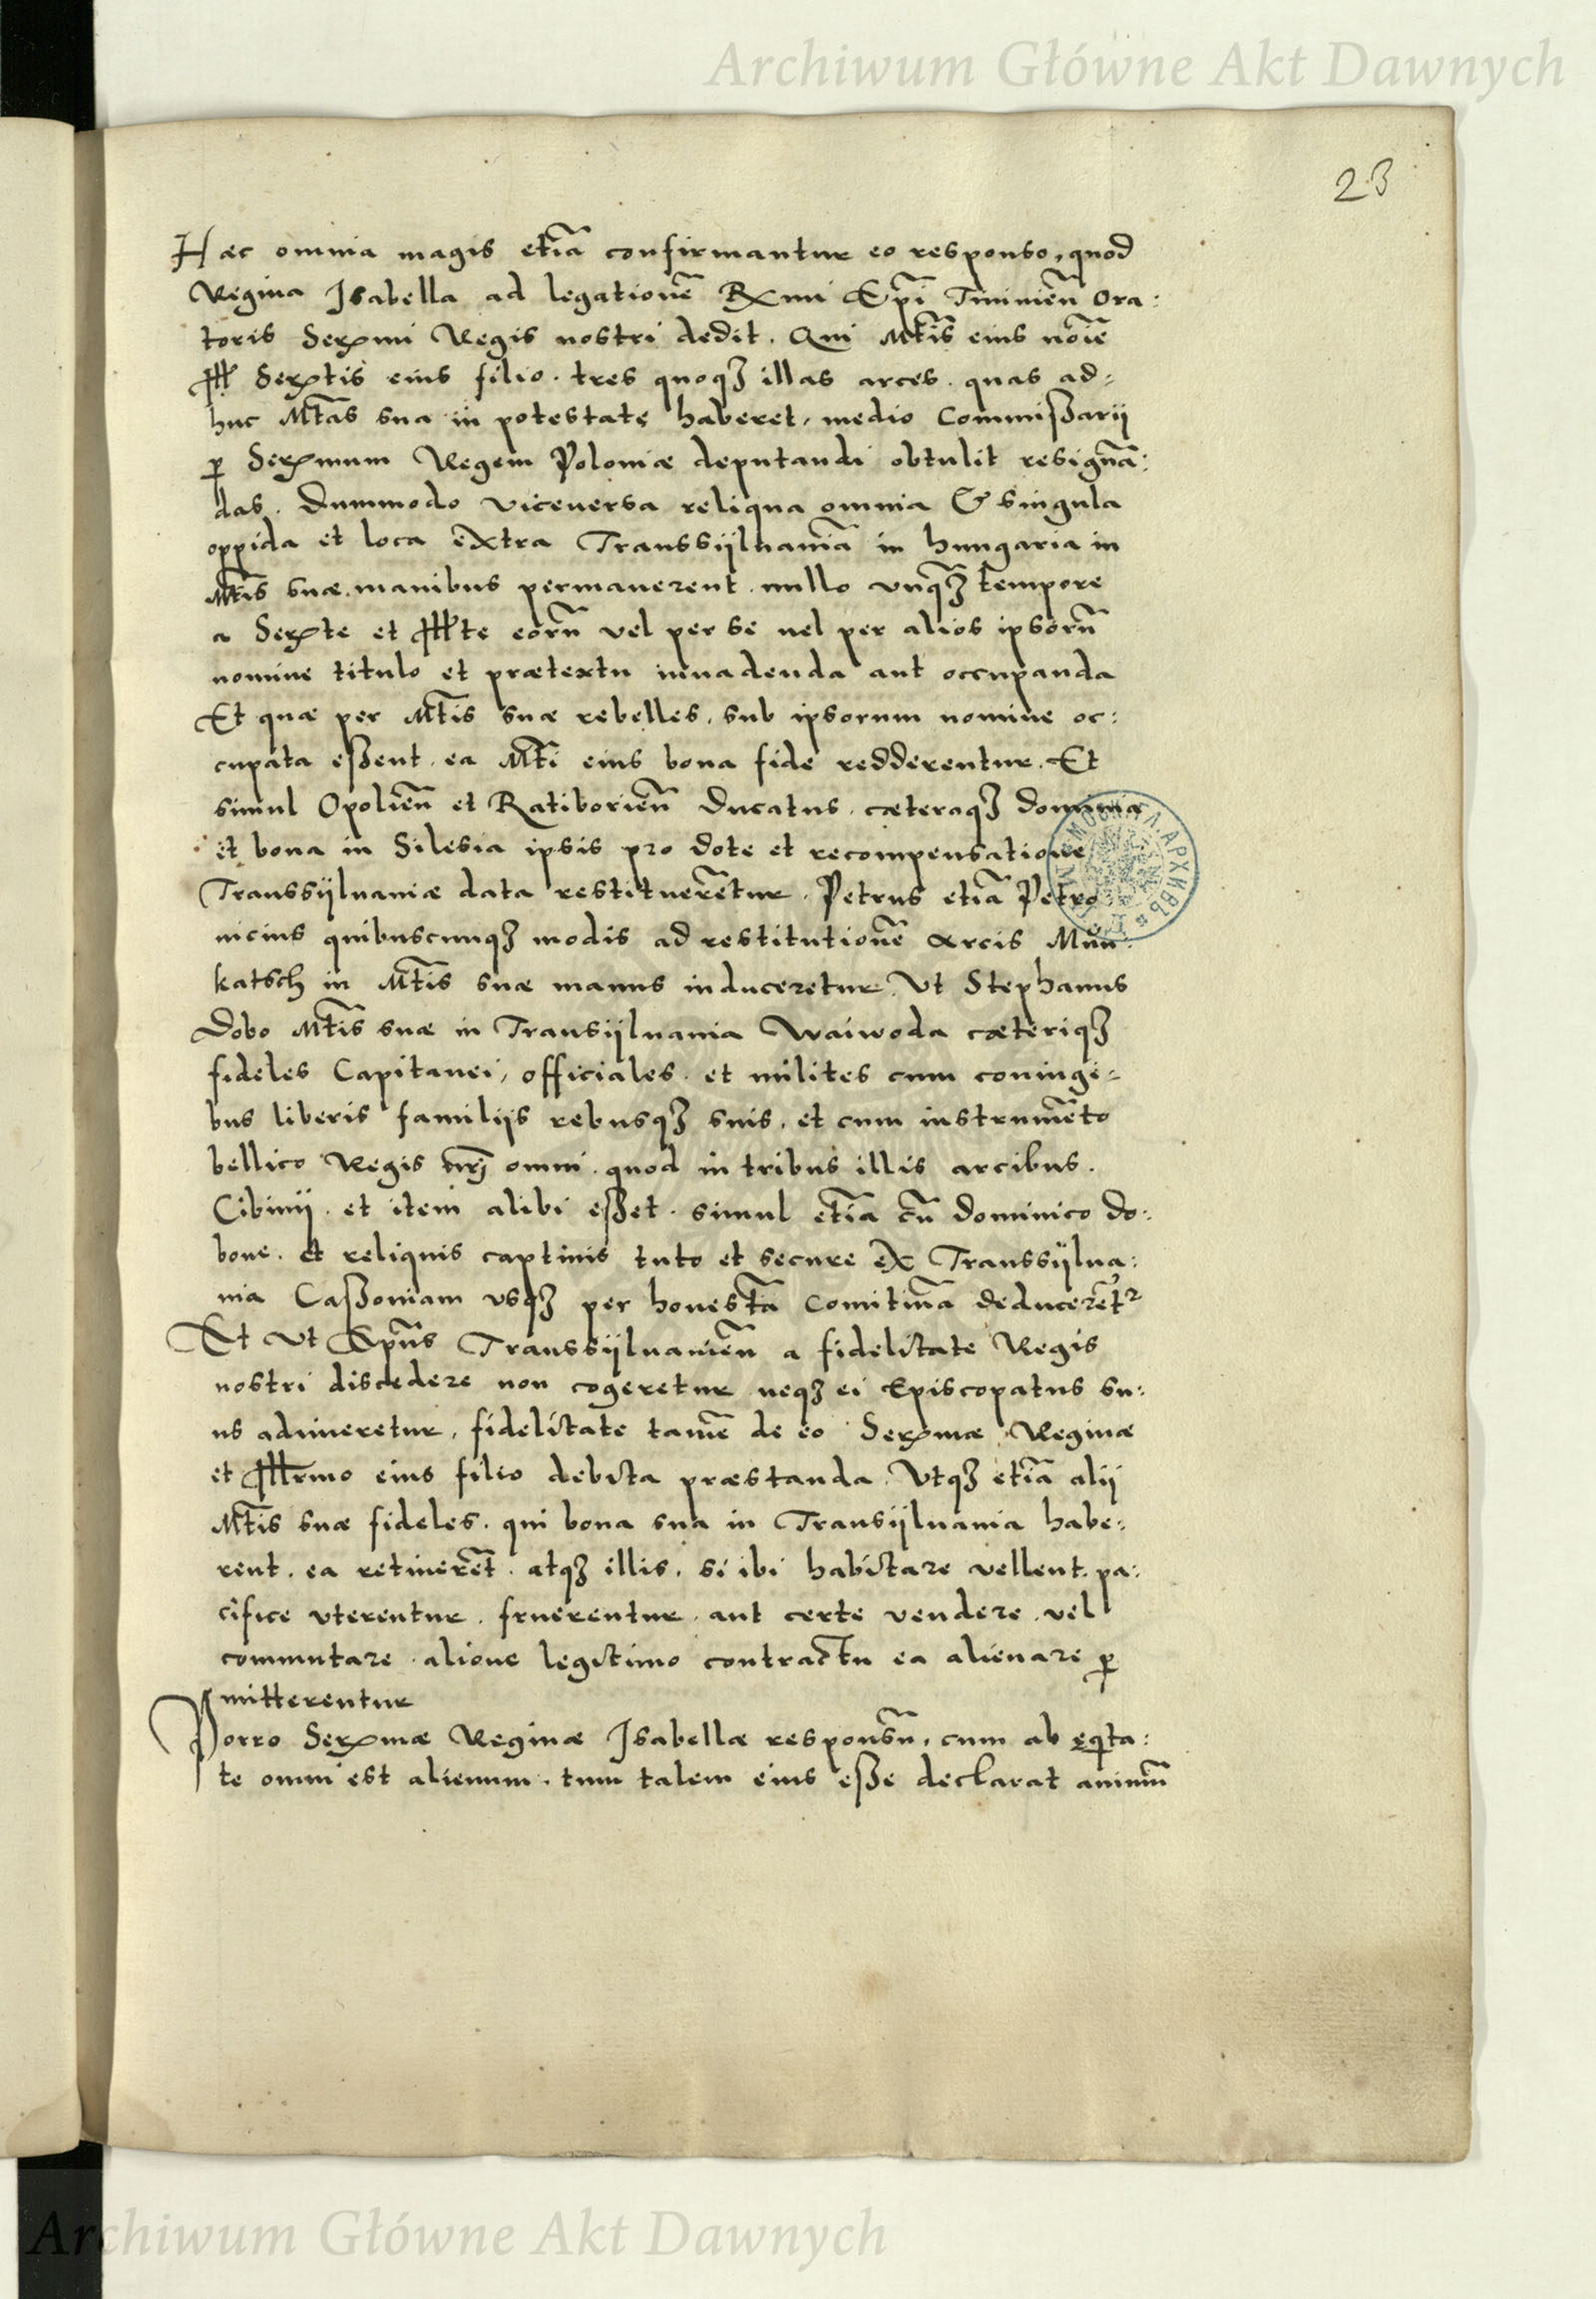 Archiwum Główne Akt Dawnych
23
Haec omnia magis etiã confirmantur eo responso, quod
Regina Isabella ad legationẽ Rxmi Epĩ Tininieñ Ora:
toris Serxmi Regis nostri dedit. Qui Mtĩs eius noĩe
Ill Serxtis eius filio. tres quoqȝ illas arces. quas ad=
huc Mtãs sua in potestate haberet, medio Commißarij
p Serxmum Regem Poloniæ deputandi obtulit resignã:
das. Dummodo viceuersa reliqua omnia & singula
oppida et loca extra Transsÿluaniã in hungaria in
Mtĩs suæ manibus permanerent. nullo vnqȝ tempore
a Serxte et Illte eorũ vel per se uel per alios ipsorũ
nomine titulo et prætextu inuadenda aut occupanda
Et quæ per Mtĩs suæ rebelles, sub ipsorum nomine oc:
cupata eßent. ea Mtĩ eius bona fide redderentur. Et
simul Opolieñ et Ratiborieñ Ducatus. cæteraqȝ dominia
et bona in Silesia ipsis pro dote et recompensatione
Transsÿluaniæ data restituerẽtur. Petrus etiã Petro:
uicius quibuscunqȝ modis ad restitutionẽ Arcis Mun:
katsch in Mtĩs suæ manus induceretur. Vt Stephanus
Dobo Mtĩs suæ in Transÿluania Waiwoda cæteriqȝ
fideles Capitanei, officiales. et milites cum coniugi=
bus liberis familijs rebusqȝ suis. et cum instrumẽto
bellico Regis nrĩ omni. quod in tribus illis arcibus.
Cibinij. et item alibi eßet. simul etiã cũ Dominico Do:
boue. et reliquis captiuis tuto et secure ex Transsÿlua:
nia Caßouiam vsqȝ per honestã Comitiuã deducerẽtr
Et Vt Epũs Transsÿluanieñ a fidelitate Regis
nostri discedere non cogeretur neqȝ ei Episcopatus su:
us adimeretur, fidelitate tamẽ de eo Serxmæ Reginæ
et Illrmo eius filio debita præstanda. Vtqȝ etiã alij
Mtĩs suæ fideles. qui bona sua in Transÿluania habe=
rent. ea retinerẽt. atqȝ illis. si ibi habitare vellent. pa:
cifice vterentur. fruerentur. aut certe vendere. vel
commutare. alioue legitimo contractu ea alienare p
mitterentur
Porro Serxmæ Reginæ Isabellæ responsũ, cum ab eqita:
te omni est alienum. tum talem eius eße declarat animũ
Archiwum Główne Akt Dawnych